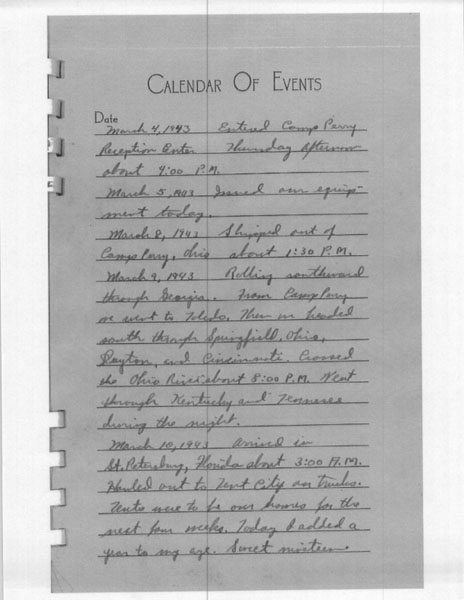 CALENDAR OF EVENTS
Date
March 4, 1943 Entered Camp Perry
Reception Center Thursday afternoon
about 9:00 P.M.
March 5, 1943 Issued our equip-
ment today.
March 8, 1943 Shipped out of
Camp Perry, Ohio about 1:30 P.M.
March 9, 1943 Rolling southward
through Georgia. From Camp Perry
we went to Toledo. Then we headed
south through Springfield, Ohio,
Dayton, and Cincinnati. Crossed
the Ohio River about 8:00 P.M. Went
through Kentucky and Tennessee
during the night.
March 10, 1943 Arrived in
St. Petersburg, Florida about 3:00 A.M.
Hauled out to Tent City on trucks.
Tents were to be our homes for the
next four weeks. Today I added a
year to my age. Sweet nineteen.